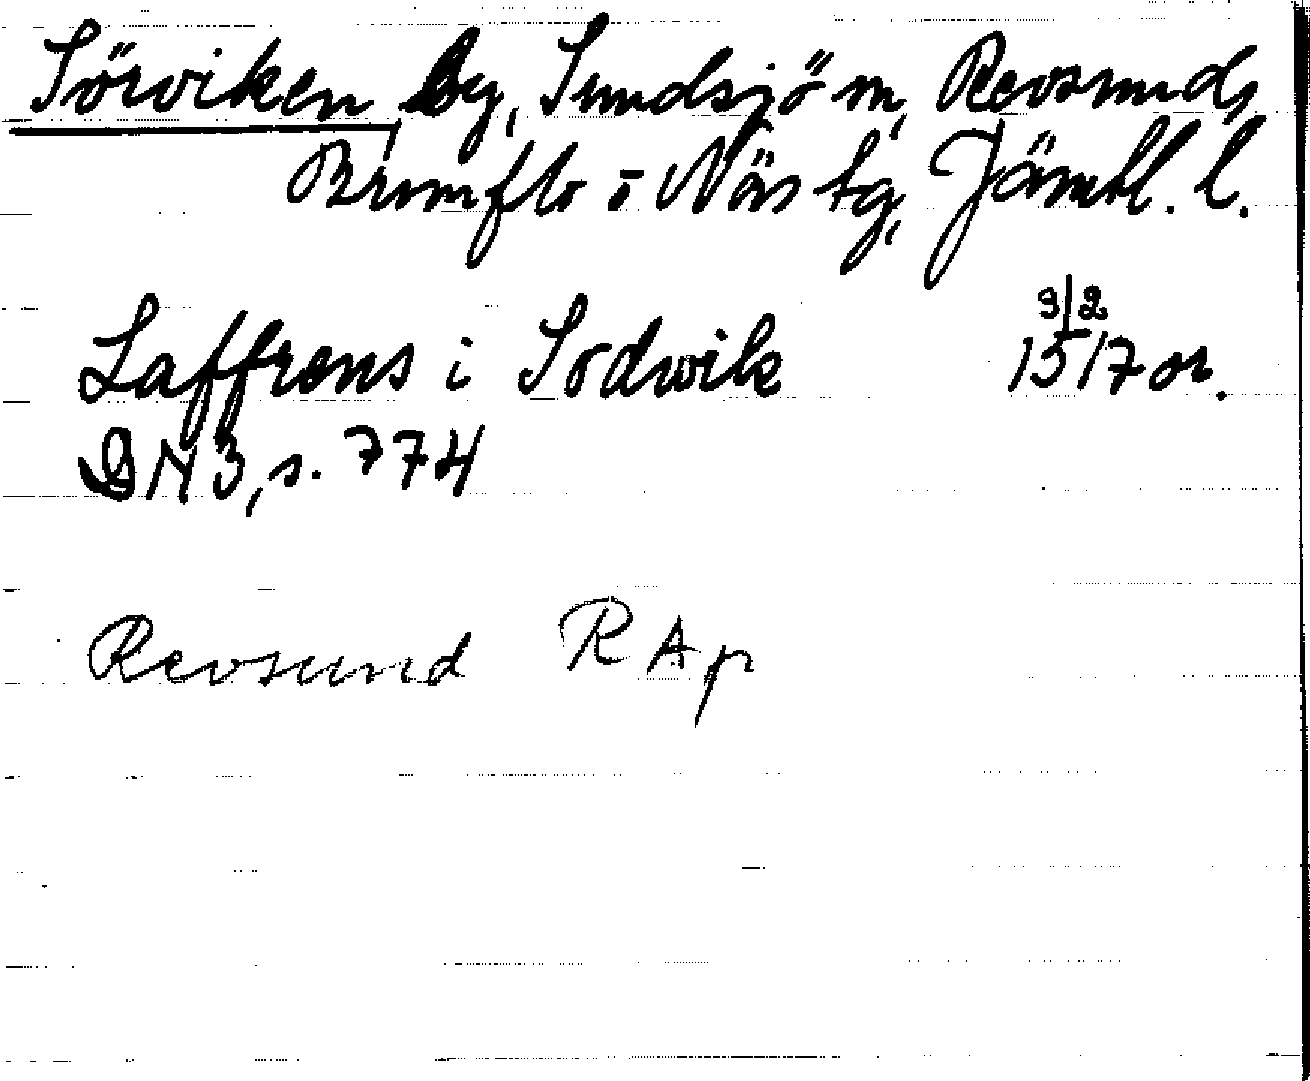 Sörviken by, Sundsjö sn, Revsunds,
Brunflo o Näs tg, Jämtl. l.
Laffrens i Sodwik 9/2 1517 or.
DN 3, s. 774
Revsund RAp